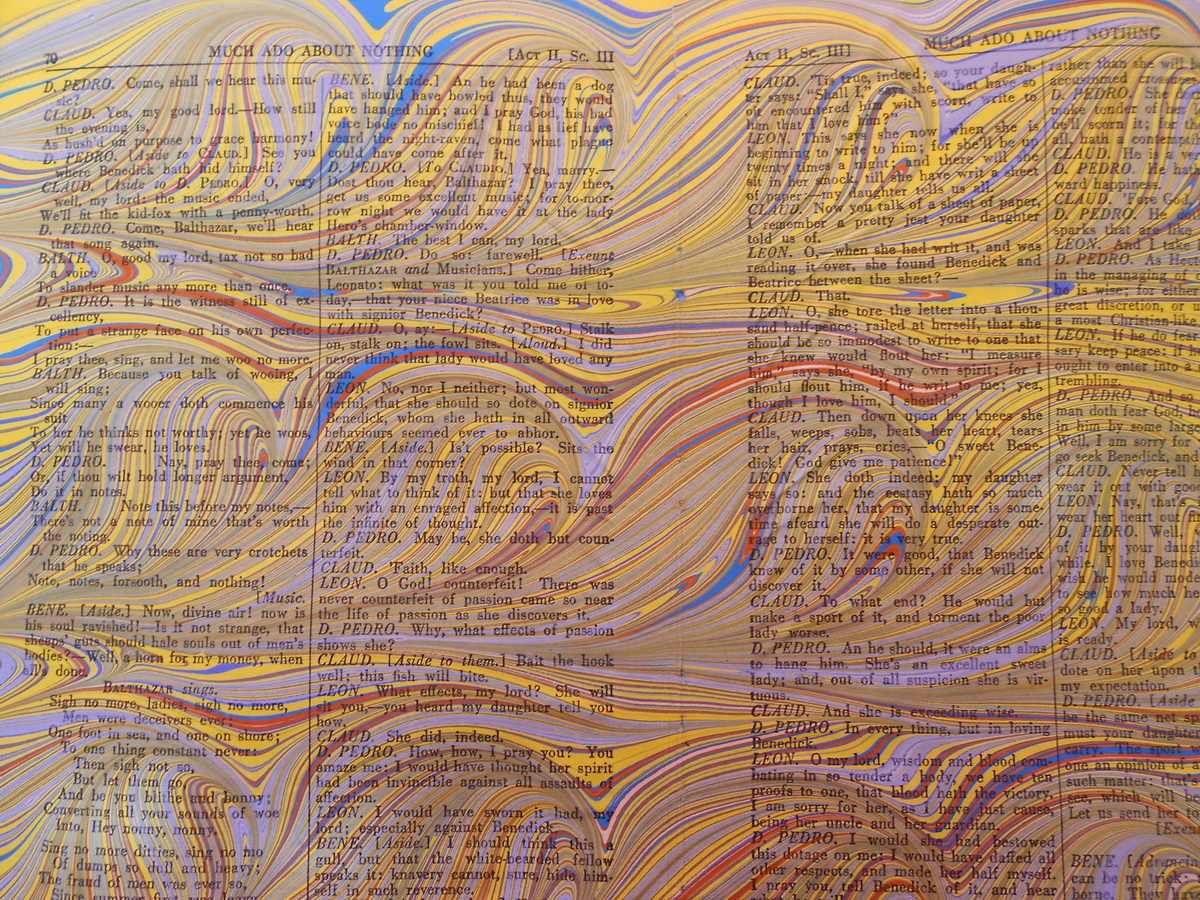 70 MUCH ADO ABOUT NOTHING [ACT II, SC. III
D. PEDRO. Come, shall we hear this mu-
sic?
CLAUD. Yea, my good lord.—How still
the evening is,
As hush'd on purpose to grace harmony!
D. PEDRO. [Aside to CLAUD.] See you
where Benedick hath hid himself?
CLAUD. [Aside to D. PEDRO.] O, very
well, my lord: the music ended,
We'll fit the kid-fox with a penny-worth.
D. PEDRO. Come, Balthazar, we'll hear
that song again.
BALTH. O, good my lord, tax not so bad
a voice
To slander music any more than once.
D. PEDRO. It is the witness still of ex-
cellency,
To put a strange face on his own perfec-
tion:—
I pray thee, sing, and let me woo no more.
BALTH. Because you talk of wooing, I
will sing;
Since many a wooer doth commence his
suit
To her he thinks not worthy; yet he woos,
Yet will he swear, he loves.
D. PEDRO. Nay, pray thee, come;
Or, if thou wilt hold longer argument,
Do it in notes.
BALTH. Note this before my notes,—
There's not a note of mine that's worth
the noting.
D. PEDRO. Why these are very crotchets
that he speaks;
Note, notes, forsooth, and nothing!
[Music.
BENE. [Aside.] Now, divine air! now is
his soul ravished!—Is it not strange, that
sheeps' guts should hale souls out of men's
bodies?—Well, a horn for my money, when
all's done.
BALTHAZAR sings.
Sigh no more, ladies, sigh no more,
Men were deceivers ever;
One foot in sea, and one on shore;
To one thing constant never:
Then sigh not so,
But let them go,
And be you blithe and bonny;
Converting all your sounds of woe
Into, Hey nonny, nonny.
Sing no more ditties, sing no mo
Of dumps so dull and heavy;
The fraud of men was ever so,
Since summer first was leavy.
BENE. [Aside.] An he had been a dog
that should have howled thus, they would
have hanged him; and I pray God, his bad
voice bode no mischief! I had as lief have
heard the night-raven, come what plague
could have come after it.
D. PEDRO. [To CLAUDIO.] Yea, marry.—
Dost thou hear, Balthazar? I pray thee,
get us some excellent music; for to-mor-
row night we would have it at the lady
Hero's chamber-window.
BALTH. The best I can, my lord.
D. PEDRO. Do so: farewell. [Exeunt
BALTHAZAR and Musicians.] Come hither,
Leonato: what was it you told me of to-
day,—that your piece Beatrice was in love
with signior Benedick?
CLAUD. O, ay:—[Aside to PEDRO.] Stalk
on, stalk on; the fowl sits. [Aloud.] I did
never think that lady would have loved any
man.
LEON. No, nor I neither; but most won-
derful, that she should so dote on signior
Benedick, whom she hath in all outward
behaviours seemed ever to abhor.
BENE. [Aside.] Is't possible? Sits the
wind in that corner?
LEON. By my troth, my lord, I cannot
tell what to think of it; but that she loves
him with an enraged affection,—it is past
the infinite of thought.
D. PEDRO. May be, she doth but coun-
terfeit.
CLAUD. 'Faith, like enough.
LEON. O God! counterfeit! There was
never counterfeit of passion came so near
the life of passion as she discovers it.
D. PEDRO. Why, what effects of passion
shows she?
CLAUD. [Aside to them.] Bait the hook
well; this fish will bite.
LEON. What effects, my lord? She will
sit you,—you heard my daughter tell you
how.
CLAUD. She did, indeed.
D. PEDRO. How, how, I pray you? You
amaze me: I would have thought her spirit
had been invincible against all assaults of
affection.
LEON. I would have sworn it had, my
lord; especially against Benedick.
BENE. [Aside.] I should think this a
gull, but that the white-bearded fellow
speaks it: knavery cannot, sure, hide him-
self in such reverence.
ACT II, SC. III] MUCH ADO ABOUT NOTHING
CLAUD. 'Tis true, indeed; so your daugh-
ter says. "Shall I," says she, "that have so
oft encountered him with scorn, write to
him that I love him?"
LEON. This says she now when she is
beginning to write to him; for she'll be up
twenty times a night; and there will she
sit in her smock, till she have writ a sheet
of paper:—my daughter tells us all.
CLAUD. Now you talk of a sheet of paper,
I remember a pretty jest your daughter
told us of.
LEON. O,—when she had writ it, and was
reading it over, she found Benedick and
Beatrice between the sheet?—
CLAUD. That.
LEON. O, she tore the letter into a thou-
sand half-pence; railed at herself, that she
should be so immodest to write to one that
she knew would flout her: "I measure
him," says she, "by my own spirit; for I
should flout him, if he writ to me; yea,
though I love him, I should."
CLAUD. Then down upon her knees she
falls, weeps, sobs, beats her heart, tears
her hair, prays, cries,—"O sweet Bene-
dick! God give me patience!"
LEON. She doth indeed; my daughter
says so: and the ecstasy hath so much
overborne her, that my daughter is some-
time afeard she will do a desperate out-
rage to herself: it is very true.
D. PEDRO. It were good, that Benedick
knew of it by some other, if she will not
discover it.
CLAUD. To what end? He would but
make a sport of it, and torment the poor
lady worse.
D. PEDRO. An he should, it were an alms
to hang him. She's an excellent sweet
lady; and, out of all suspicion she is vir-
tuous.
CLAUD. And she is exceeding wise.
D. PEDRO. In every thing, but in loving
Benedick.
LEON. O my lord, wisdom and blood com-
bating in so tender a body, we have ten
proofs to one, that blood hath the victory.
I am sorry for her, as I have just cause,
being her uncle and her guardian.
D. PEDRO. I would she had bestowed
this dotage on me; I would have daffed all
other respects, and made her half myself.
I pray you, tell Benedick of it, and hear
what he will
rather than she will b
accustomed crossness
D. PEDRO. She
make tender of her
he'll scorn it; for th
all, hath a contempt
CLAUD. He is a ve
D. PEDRO. He hat
ward happiness.
CLAUD. 'Fore God,
D. PEDRO. He do
sparks that are like
LEON. And I take
D. PEDRO. As Hect
in the managing of
he is wise; for eithe
great discretion, or
a most Christian-like
LEON. If he do fear
sary keep peace; if h
ought to enter into a
trembling.
D. PEDRO. And so
man doth fear God, h
in him by some large
Well, I am sorry for
go seek Benedick, and
CLAUD. Never tell
wear it out with good
LEON. Nay, that's
wear her heart out fi
D. PEDRO. Well,
of it by your daug
while. I love Bened
wish he would mode
to see how much he
so good a lady.
LEON. My lord, w
is ready.
CLAUD. [Aside to
dote on her upon
my expectation.
D. PEDRO. [Aside
be the same net s
must your daughter
carry. The sport
one an opinion of a
such matter: that
see, which will be
Let us send her
[Exe
BENE. [Advancin
can be no trick:
borne. They